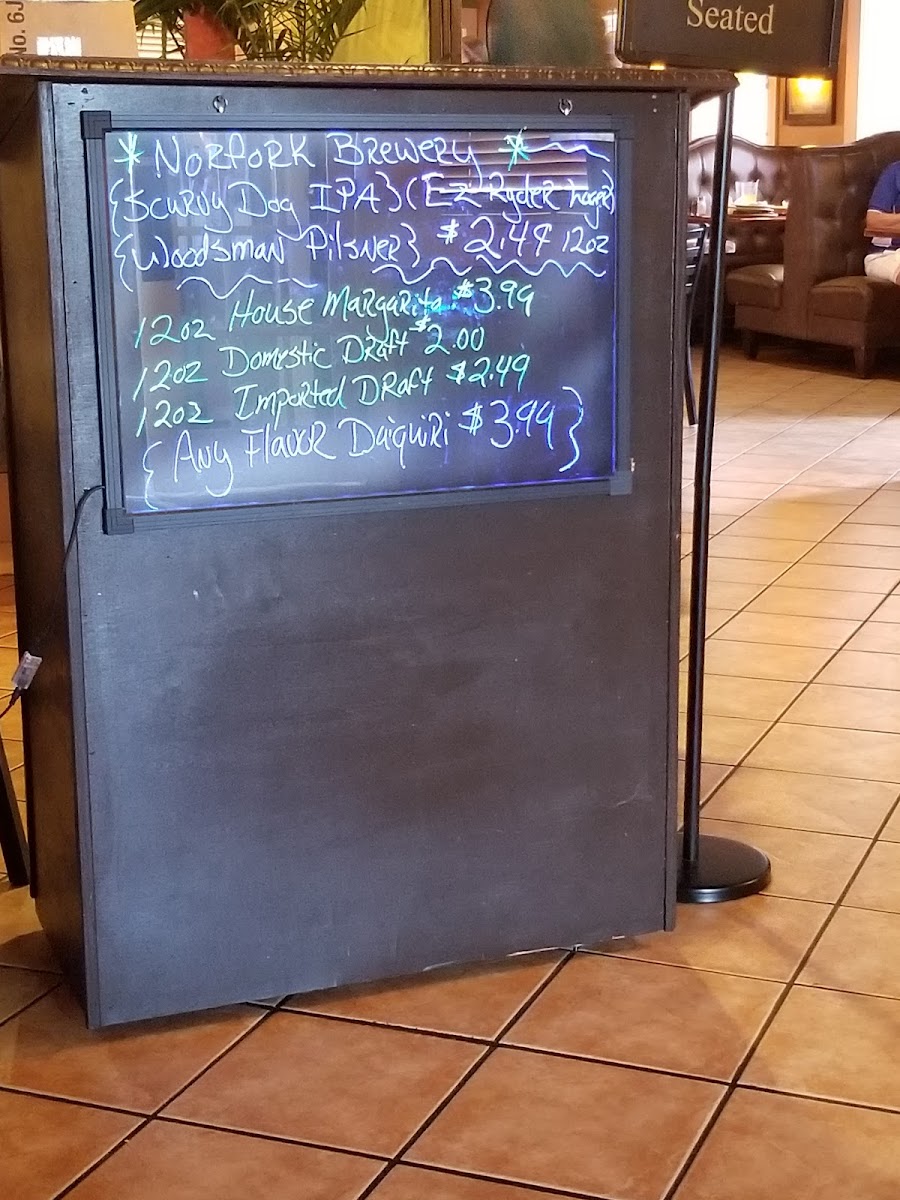 No. 6J
Seated
* Norfork Brewery *
{Scurvy Dog IPA} (Ez Ryder Lager)
{Woodsman Pilsner} $2.49 12oz
12oz House Margarita $3.99
12oz Domestic Draft $2.00
12oz Imported Draft $2.49
{Any Flavor Daiquiri $3.99}